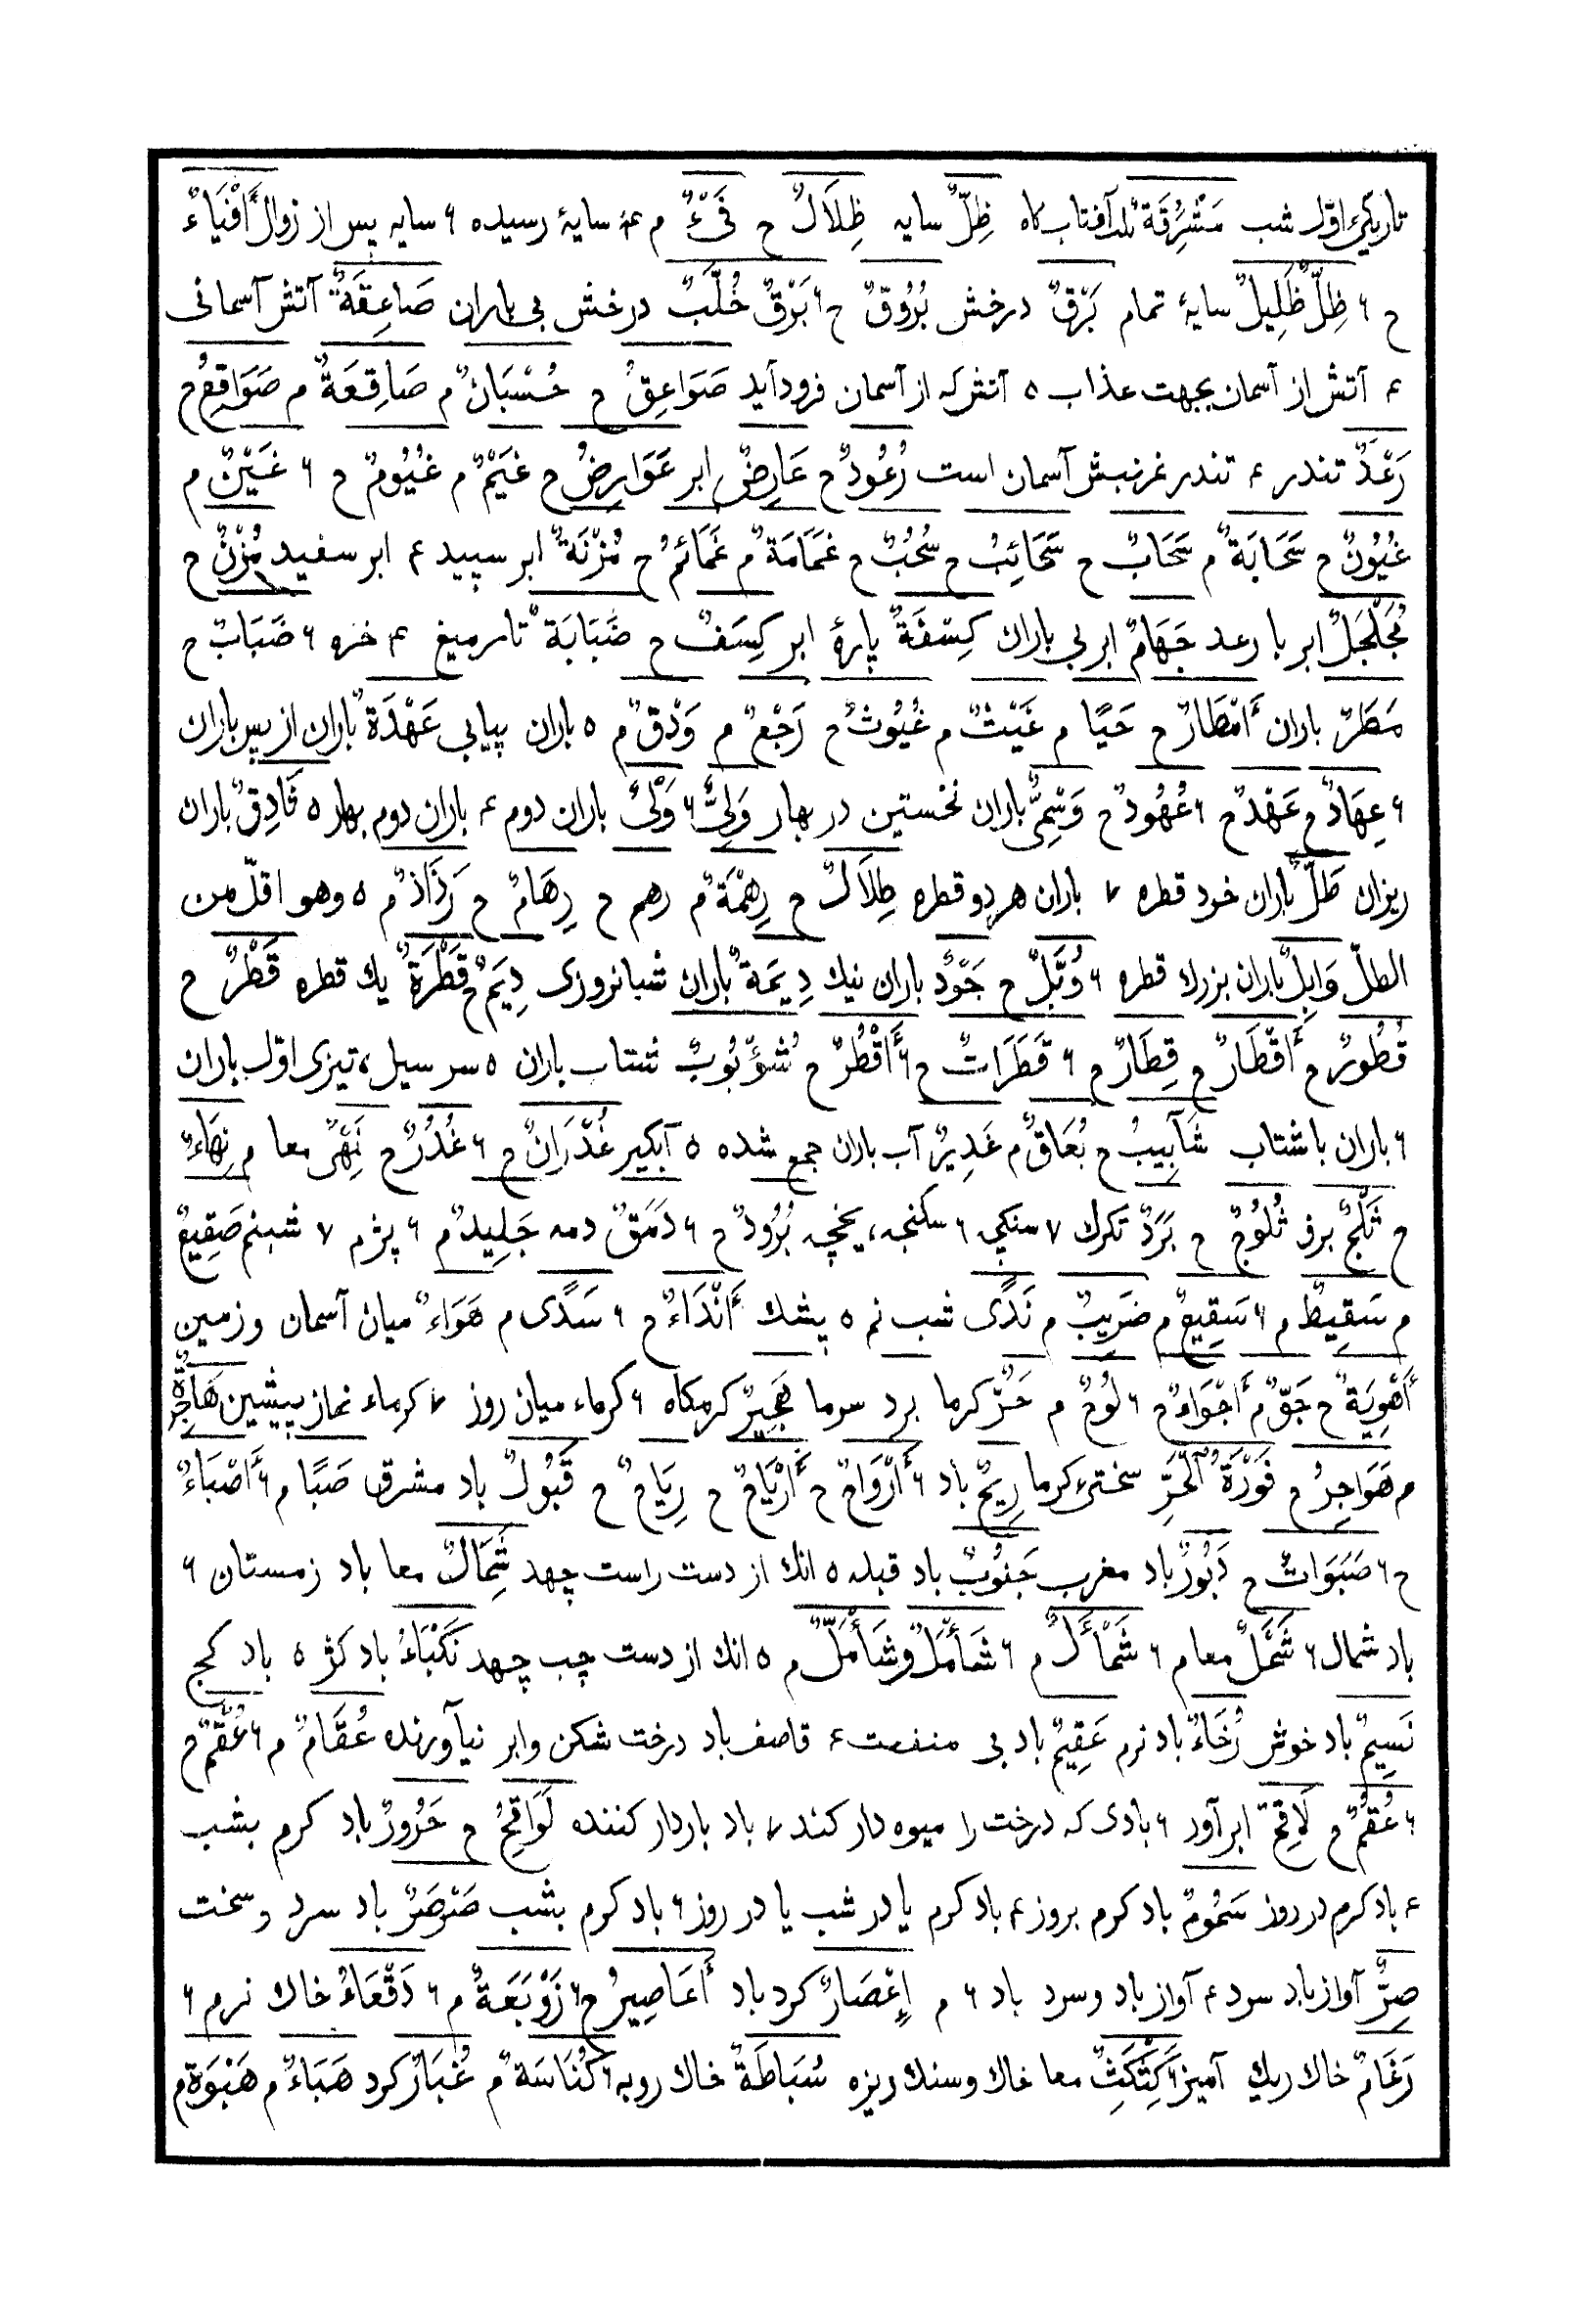 تاریکیء اوّل شب مَشْرُقَةٌ ثلث آفتاب کاه ظِلٌّ سایه ظِلَالٌ ح فَیْءٌ م ۴ سایۀ رسیده ۶ سایه پس از زوال أَفْیَاءٌ
ح ۶ ظِلٌّ ظَلِیلٌ سایۀ تمام بَرْقٌ درخش بُرُوقٌ ح ۶ بَرْقٌ خُلَّبٌ درخش بی باران صَاعِقَةٌ آتش آسمانی
۴ آتش از آسمان بجهت عذاب ۵ آتش که از آسمان فرود آید صَوَاعِقُ ح حُسْبَانٌ م صَاقِعَةٌ م صَوَاقِعُ ح
رَعْدٌ تندر ۴ تندر غرنبش آسمان است رُعُودٌ ح عَارِضٌ ابر عَوَارِضُ ح غَیْمٌ م غُیُومٌ ح ۶ غَیْنٌ م
غُیُونٌ ح سَحَابَةٌ م سَحَابٌ ح سَحَائِبُ ح سُحُبٌ ح غَمَامَةٌ م غَمَائِمُ ح مُزْنَةٌ ابر سپید ۴ ابر سفید مُزْنٌ ح
مُجَلْجَلٌ ابر با رعد جَهَامٌ ابر بی باران کِسْفَةٌ پارۀ ابر کِسَفٌ ح ضَبَابَةٌ تار میغ ۴ خره ۶ ضَبَابٌ ح
مَطَرٌ باران أَمْطَارٌ ح حَیًا م غَیْثٌ م غُیُوثٌ ح رَجْعٌ م وَدْقٌ م ۵ باران پیاپی عَهْدَةٌ باران از پس باران
۶ عِهَادٌ ح عَهْدٌ ح ۶ عُهُودٌ ح وَسْمِیٌّ باران نخستین در بهار وَلِیٌّ ۶ وَلْیٌ باران دوم ۴ باران دوم بهار ۵ قَادِقٌ باران
ریزان طَلٌّ باران خود قطره ۷ باران هر دو قطره طِلَالٌ ح رِهْمَةٌ م رهم ح رِهَامٌ ح رَذَاذٌ م ۵ وهو اقلّ من
الطلّ وَابِلٌ باران بزرک قطره ۶ وُبَّلٌ ح جَوْدٌ باران نیک دِیمَةٌ باران شبانروزی دِیَمٌ ح قَطْرَةٌ یک قطره قَطْرٌ ح
قُطُورٌ ح أَقْطَارٌ ح قِطَارٌ ح ۶ قَطَرَاتٌ ح ۶ أَقْطُرٌ ح شُؤْبُوبٌ شتاب باران ۵ سر سیل ۵ تیزی اوّل باران
۶ باران باشتاب شَآبِیبُ ح بُعَاقٌ م غَدِیرٌ آب باران جمع شده ۵ آبکیر غُدْرَانٌ ح ۶ غُدُرٌ ح نِهْیٌ معا م نِهَاءٌ
ح ثَلْجٌ برف ثُلُوجٌ ح بَرَدٌ تکرک ۷ سنکچه ۶ سکنجه، یخچه بُرُودٌ ح ۶ دَمَقٌ دمه جَلِیدٌ م ۶ پژم ۷ شبنم صَقِیعٌ
م سَقِیطٌ م ۶ سَقِیعٌ م ضَرِیبٌ م نَدًی شب نم ۵ پشک أَنْدَاءٌ ح ۶ سَدًی م هَوَاءٌ میان آسمان و زمین
أَهْوِیَةٌ ح جَوٌّ م أَجْوَاءٌ ح ۶ لُوحٌ م حَرٌّ کرما برد سرما هَجِیرٌ کرمکاه ۶ کرماء میان روز ۷ کرماء نماز پیشین هَاجِرَةٌ
م هَوَاجِرُ ح فَوْرَةُ الْحَرِّ سختیء کرما رِیحٌ باد ۶ أَرْوَاحٌ ح أَرْیَاحٌ ح رِیَاحٌ ح قَبُولٌ باد مشرق صَبًا م ۶ أَصْبَاءٌ
ح ۶ صَبَوَاتٌ ح دَبُورٌ باد مغرب جَنُوبٌ باد قبله ۵ انک از دست راست جهد شَِمَالٌ معا باد زمستان ۶
باد شمال ۶ شَمَّلٌ معا م ۶ شَمْأَلٌ م ۶ شَأْمَلٌ وشَأْمَلٌّ م ۵ انک از دست چب جهد نَکْبَاءُ باد کژ ۵ باد کج
نَسِیمٌ باد خوش رُخَاءٌ باد نرم عَقِیمٌ باد بی منفعت ۴ قاصف باد درخت شکن وابر نیاورنده عُقَّامٌ م ۶ عُقَّمٌ ح
۶ عُقُمٌ ح لَاقِحٌ ابر آور ۶ بادی که درخت را میوه دار کند ۷ باد باردار کننده لَوَاقِحُ ح حَرُورٌ باد کرم بشب
۴ باد کرم در روز سَمُومٌ باد کرم بروز ۴ باد کرم یا در شب یا در روز ۶ باد کرم بشب صَرْصَرٌ باد سرد و سخت
صِرٌّ آواز باد سرد ۴ آواز باد و سرد باد ۶ م إِعْصَارٌ کرد باد أَعَاصِیرُ ح ۶ زَوْبَعَةٌ م ۶ دَقْعَاءُ خاک نرم ۶
رَغَامٌ خاک ریک آمیز ۶ کِثْکِثٌ معا خاک و سنک ریزه سُبَاطَةٌ خاک روبه ۶ کُنَاسَةٌ م غُبَارٌ کرد هَبَاءٌ م هَبْوَةٌ م